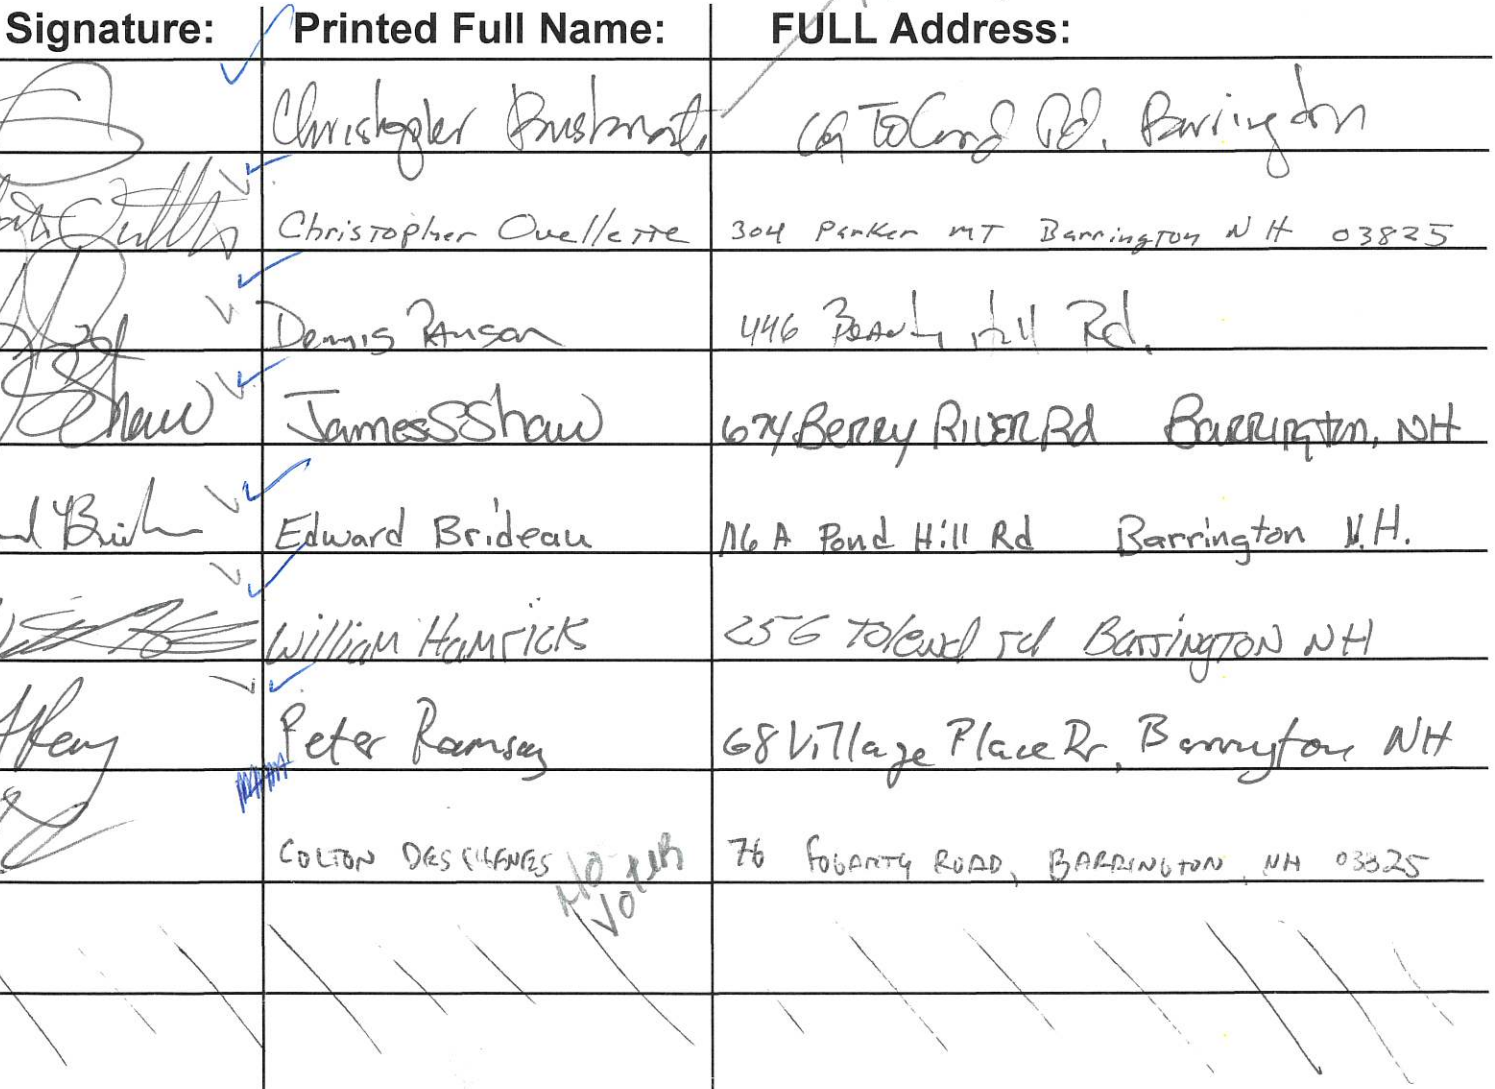 Signature: Printed Full Name: FULL Address:
Christopher 69 Toland Rd. Barrington
Christopher Ouellette 304 Parker MT Barrington NH 03825
Dennis Ranson 446 Beauty Hill Rd.
Shaw James S Shaw 674 Berry River Rd Barrington, NH
Edward Brideau A Pond Hill Rd Barrington N.H.
William Hamrick 256 Toland rd Barrington NH
Peter Ramsey 68 Village Place Dr, Barrington NH
Colton Deschenes NO VOTER 76 Fogarty Road, Barrington, NH 03825